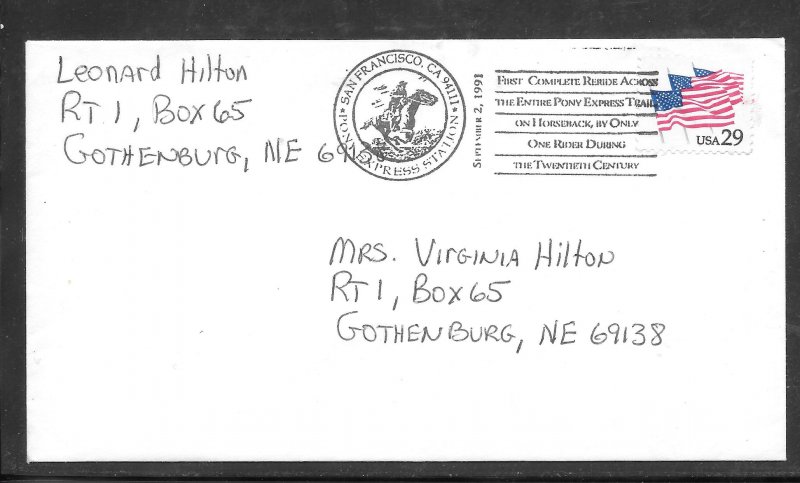 Leonard Hilton
RT 1, Box 65
GOTHENBURG, NE 69138
SAN FRANCISCO, CA 94111
PONY EXPRESS STATION
SEPTEMBER 2, 1991
FIRST COMPLETE RERIDE ACROSS
THE ENTIRE PONY EXPRESS TRAIL
ON HORSEBACK, BY ONLY
ONE RIDER DURING
THE TWENTIETH CENTURY
USA 29
MRS. VIRGINIA Hilton
RT 1, Box 65
GOTHENBURG, NE 69138